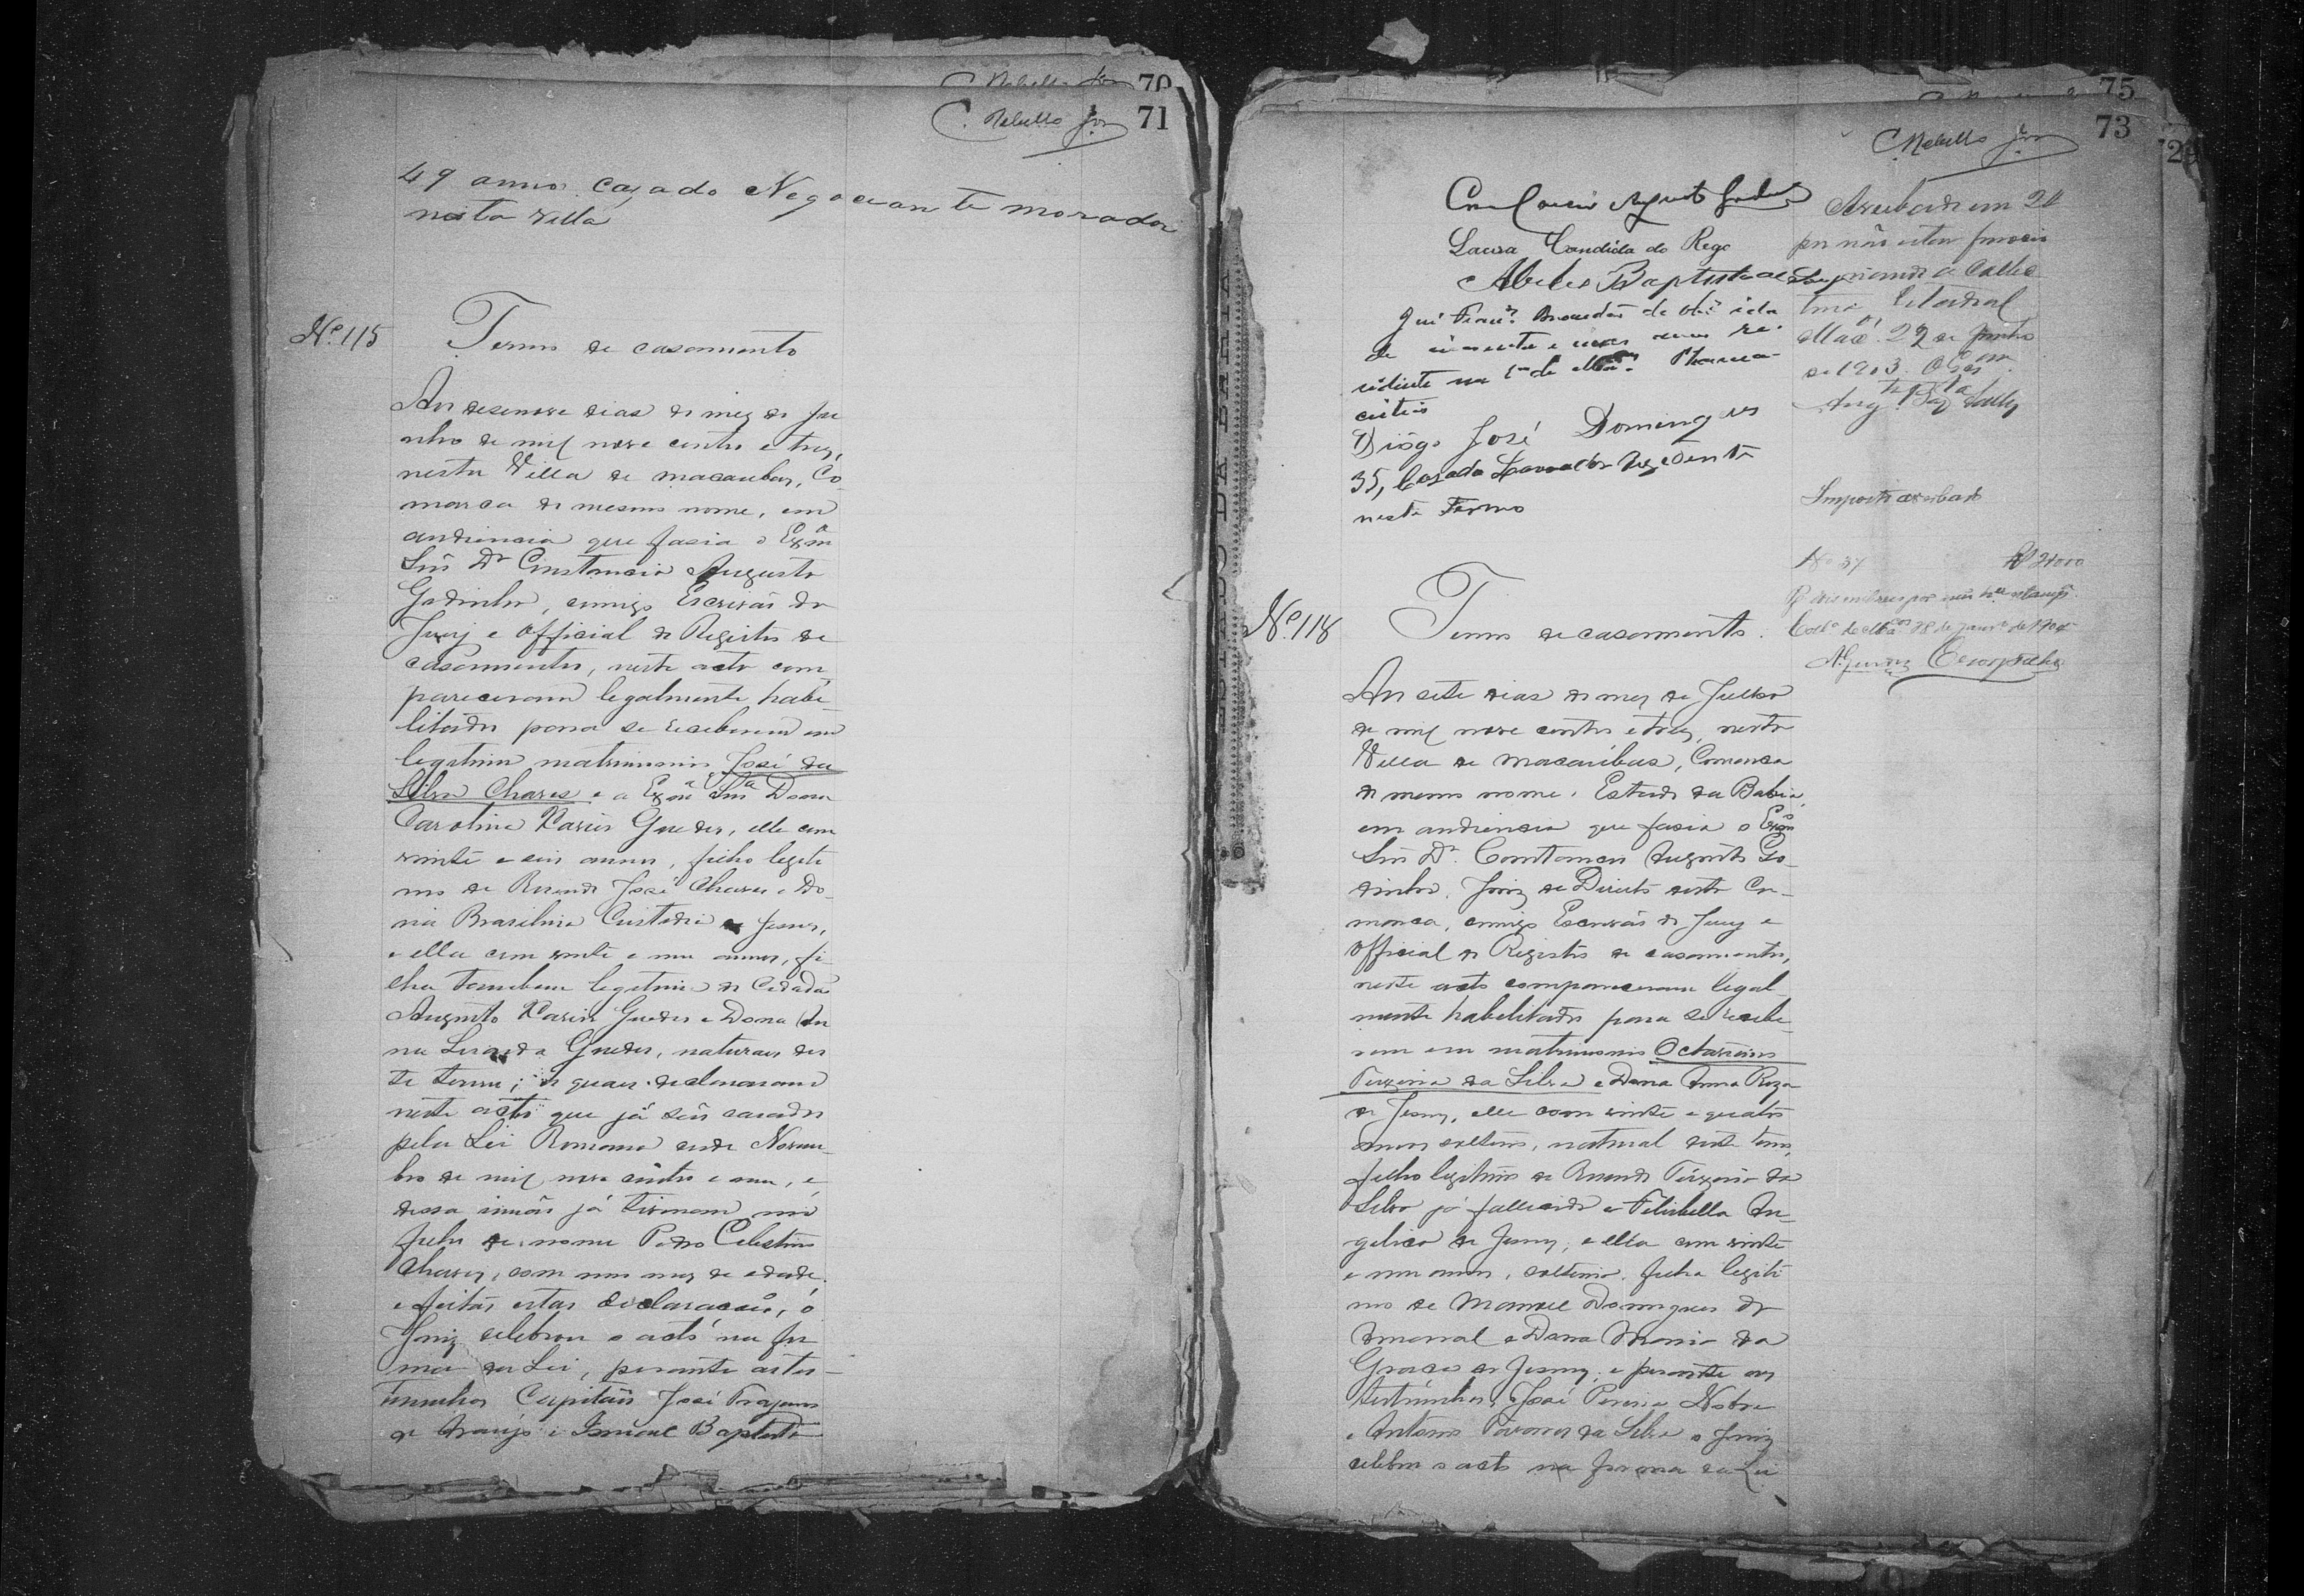 C. Rebello Jor 70
C. Rebello Jor 71
49 annos casado Negociante morador
nesta villa
Nº 115
Termo de casamento
Aos desenove dias do mez de Ju
nho de mil nove centos e trez,
nesta Villa de Macaubas, Co-
marca do mesmo nome, em
audiencia que fasia o Exmº
Snr Dr Constancio Augusto
Godinho, comigo Escrivão do
Jury e Official do Registro de
casamentos, neste acto com
pareceram legalmente habi-
litados para se receberem em
legitimo matrimonio José da
Silva Chaves e a Exmª Snrª Dona
Carolina Xavier Guedes, elle com
vinte e seis annos, filho legiti
mo de José Chaves e Do-
na Brasilina Custodia de Jesus,
e ella com vinte e um annos, fi
lha tambem legitima do Cidadão
Augusto Xavier Guedes e Dona An
na Guedes, naturaes des
te termo; os quaes declararam
neste acto que já são casados
pela Lei Romana desde Novem-
bro de mil nove centos e um, e
dessa união já tiveram um
filho de nome Pedro Celestino
Chaves, com um mez de edade.
e feitas estas declarações, o
Juiz celebrou o acto na for
ma da Lei, perante as tes-
temunhas Capitão José Trajano
de Araujo e Ismael Baptista
75
C. Rebello Jor 73
Constancio Augusto Godinho
Laura Candida do Rego
Alcides Baptista de Araujo
de cincoenta e um annos re-
sidente na Cª de Macª Pharma-
ceutico
Diôgo José Domingues
35, Casado Lavrador Rezidente
neste Termo
Averbado em 20
por não estar funccio
nando a Collec
toria Estadoal
Macas, 22 de Junho
de 1903. O Escm
Imposto averbado
Nº 37 R$ 2$000
Nº 118
Termo de casamento.
Aos sete dias do mez de Julho
de mil nove centos e trez, nesta
Villa de Macaúbas, Comarca
do mesmo nome, Estado da Bahia,
em audiencia que fasia o Exmº
Snr Dr. Constancio Augusto Go-
dinho, Juiz de Direito desta Co-
marca, comigo Escrivão do Jury e
Official do Registro de casamentos,
neste acto compareceram legal
mente habilitados para se recebe-
rem em matrimonio Octaviano
Pereira da Silva e Dona Anna Roza
de Jesus, elle com vinte e quatro
annos solteiro, natural deste termo,
filho legitimo de da
Silva já fallecido e Felisbella An-
gelica de Jesus, e ella com vinte
e um annos, solteira, filha legiti
ma de Manoel Domingues do
Amaral e Dona Maria da
Graça de Jesus, e perante as
testimunhas, José Pereira Nobre
e Antonio da Silva o Juiz
celebrou o acto na forma da Lei